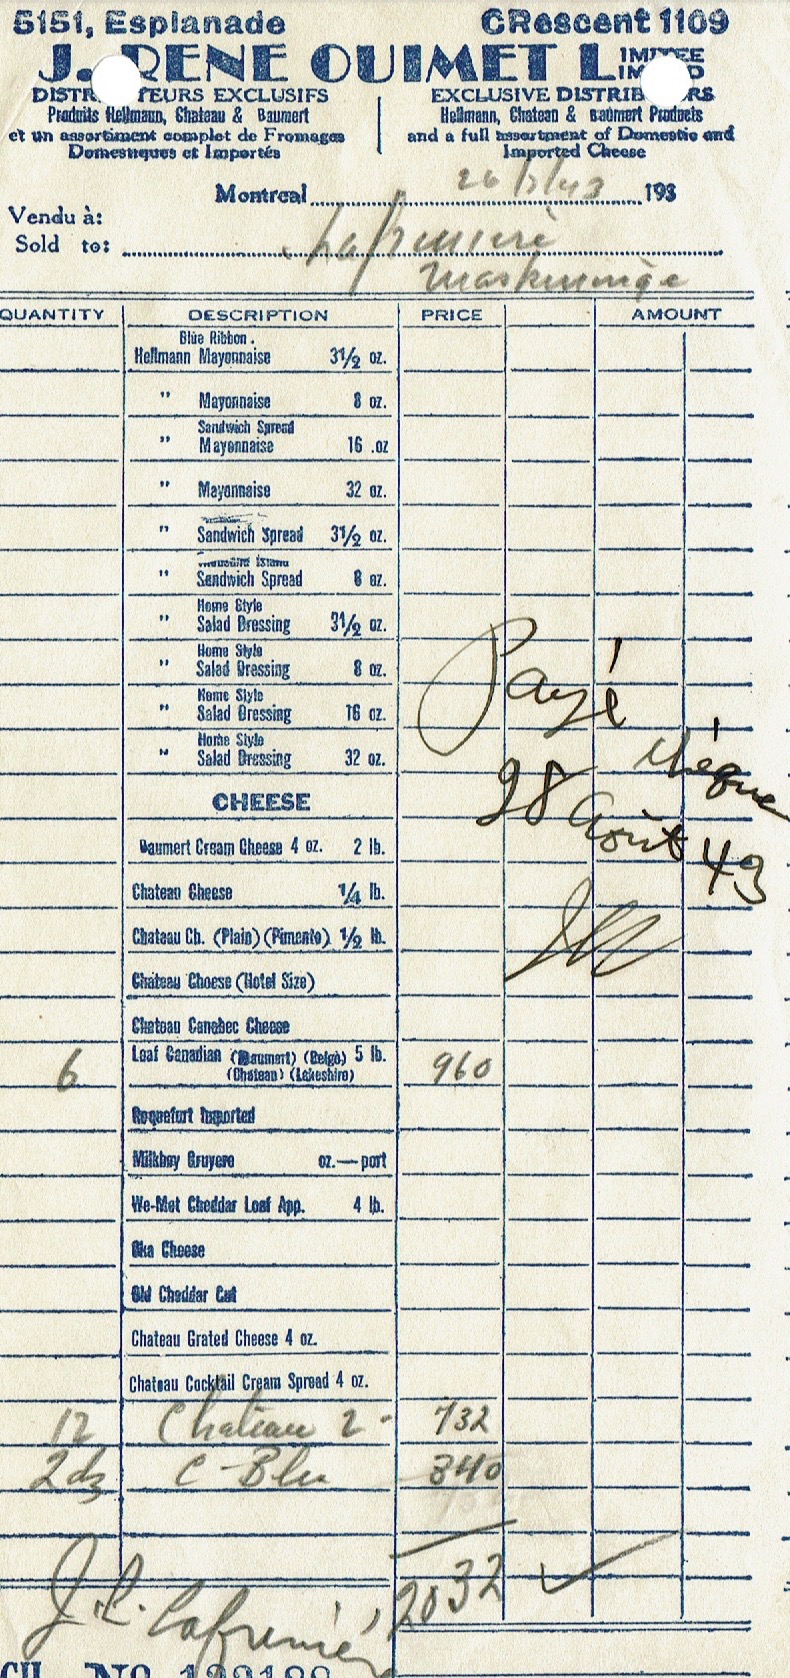 5151, Esplanade CRescent 1109
J. RENE OUIMET LIMITEE LIMITED
DISTRIBUTEURS EXCLUSIFS EXCLUSIVE DISTRIBUTORS
Produits Hellmann, Chateau & Baumert Hellmann, Chateau & Baumert Products
et un assortiment complet de Fromages and a full assortment of Domestic and
Domestiques et Importés Imported Cheese
Montreal 193
Vendu à:
Sold to: Lafrenière
Maskinongé
QUANTITY DESCRIPTION PRICE AMOUNT
Blue Ribbon.
Hellmann Mayonnaise 3½ oz.
" Mayonnaise 8 oz.
Sandwich Spread
" Mayonnaise 16 .oz
" Mayonnaise 32 oz.
" Sandwich Spread 3½ oz.
Thousand Island
" Sandwich Spread 8 oz.
Home Style
" Salad Dressing 3½ oz.
Home Style
" Salad Dressing 8 oz.
Home Style
" Salad Dressing 16 oz.
Home Style
" Salad Dressing 32 oz.
Payé
chèque
28 Août 43
CHEESE
Baumert Cream Cheese 4 oz. 2 lb.
Chateau Cheese ¼ lb.
Chateau Ch. (Plain) (Pimento) ½ lb.
Chateau Cheese (Hotel Size)
Chateau Canabec Cheese
6 Loaf Canadian (Baumert) (Belgo) 5 lb. 960
(Chateau) (Lakeshire)
Roquefort Imported
Milkbay Gruyere oz.—port
We-Met Cheddar Loaf App. 4 lb.
Oka Cheese
Old Cheddar Cut
Chateau Grated Cheese 4 oz.
Chateau Cocktail Cream Spread 4 oz.
12 Chateau 2 732
2 dz C-Bleu 340
2032
J.R. Lafrenière